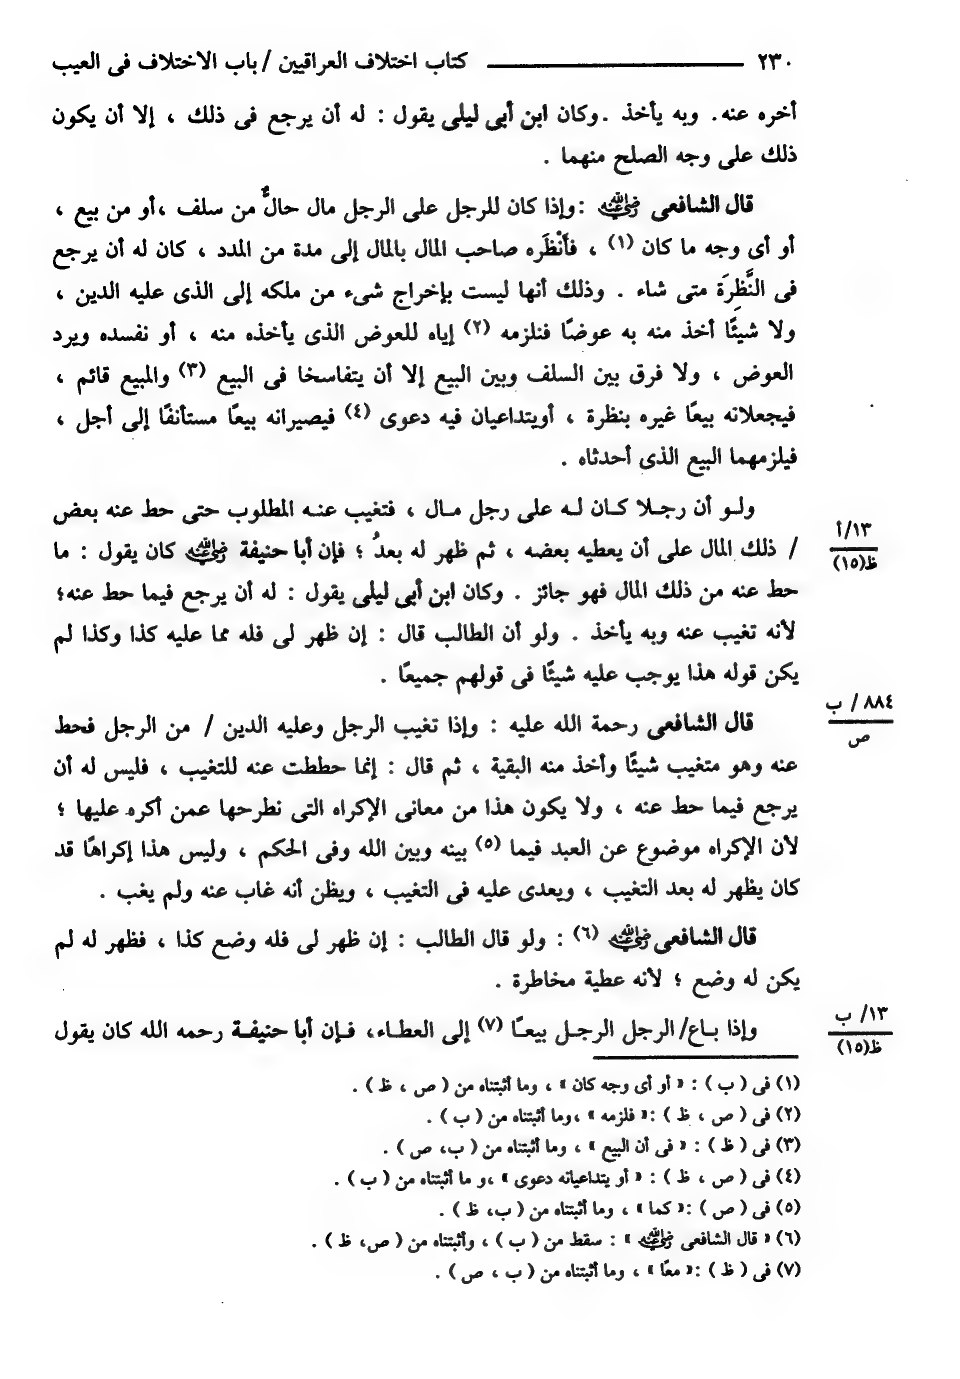 ٢٣٠ كتاب اختلاف العراقيين / باب الاختلاف فى العيب
أخره عنه. وبه يأخذ . وكان ابن أبى ليلى يقول : له أن يرجع فى ذلك ، إلا أن يكون
ذلك على وجه الصلح منهما .
قال الشافعى رضي الله عنه : وإذا كان للرجل على الرجل مال حالٌّ من سلف ، أو من بيع ،
أو أى وجه ما كان (١) ، فأَنْظَره صاحب المال بالمال إلى مدة من المدد ، كان له أن يرجع
فى النَّظِرَة متى شاء . وذلك أنها ليست بإخراج شىء من ملكه إلى الذى عليه الدين ،
ولا شيئًا أخذ منه به عوضًا فنلزمه (٢) إياه للعوض الذى يأخذه منه ، أو نفسده ويرد
العوض ، ولا فرق بين السلف وبين البيع إلا أن يتفاسخا فى البيع (٣) والمبيع قائم ،
فيجعلانه بيعًا غيره بنظرة ، أويتداعيان فيه دعوى (٤) فيصيرانه بيعًا مستأنفًا إلى أجل ،
فيلزمهما البيع الذى أحدثاه .
ولو أن رجلا كان له على رجل مال ، فتغيب عنه المطلوب حتى حط عنه بعض
١٣/أ
ظ(١٥)
/ ذلك المال على أن يعطيه بعضه ، ثم ظهر له بعدُ ؛ فإن أبا حنيفة رضي الله عنه كان يقول : ما
حط عنه من ذلك المال فهو جائز . وكان ابن أبى ليلى يقول : له أن يرجع فيما حط عنه؛
لأنه تغيب عنه وبه يأخذ . ولو أن الطالب قال : إن ظهر لى فله مما عليه كذا وكذا لم
يكن قوله هذا يوجب عليه شيئًا فى قولهم جميعًا .
٨٨٤ / ب
ص
قال الشافعى رحمة الله عليه : وإذا تغيب الرجل وعليه الدين / من الرجل فحط
عنه وهو متغيب شيئًا وأخذ منه البقية ، ثم قال : إنما حططت عنه للتغيب ، فليس له أن
يرجع فيما حط عنه ، ولا يكون هذا من معانى الإكراه التى نطرحها عمن أكره عليها ؛
لأن الإكراه موضوع عن العبد فيما (٥) بينه وبين الله وفى الحكم ، وليس هذا إكراهًا قد
كان يظهر له بعد التغيب ، ويعدى عليه فى التغيب ، ويظن أنه غاب عنه ولم يغب .
قال الشافعى رضي الله عنه (٦) : ولو قال الطالب : إن ظهر لى فله وضع كذا ، فظهر له لم
يكن له وضع ؛ لأنه عطية مخاطرة .
١٣/ ب
ظ(١٥)
وإذا باع/ الرجل الرجل بيعًا (٧) إلى العطاء، فإن أبا حنيفة رحمه الله كان يقول
(١) فى ( ب ) : « أو أى وجه كان » ، وما أثبتناه من ( ص ، ظ ) .
(٢) فى ( ص ، ظ ) : « فلزمه » ، وما أثبتناه من ( ب ) .
(٣) فى ( ظ ) : « فى أن البيع » ، وما أثبتناه من ( ب، ص ) .
(٤) فى ( ص ، ظ ) : « أو يتداعيانه دعوى » ، و ما أثبتناه من ( ب ) .
(٥) فى ( ص ) : « كما » ، وما أثبتناه من ( ب، ظ ) .
(٦) « قال الشافعى رضي الله عنه » : سقط من ( ب ) ، وأثبتناه من ( ص، ظ ) .
(٧) فى ( ظ ) : « معًا » ، وما أثبتناه من ( ب ، ص ) .